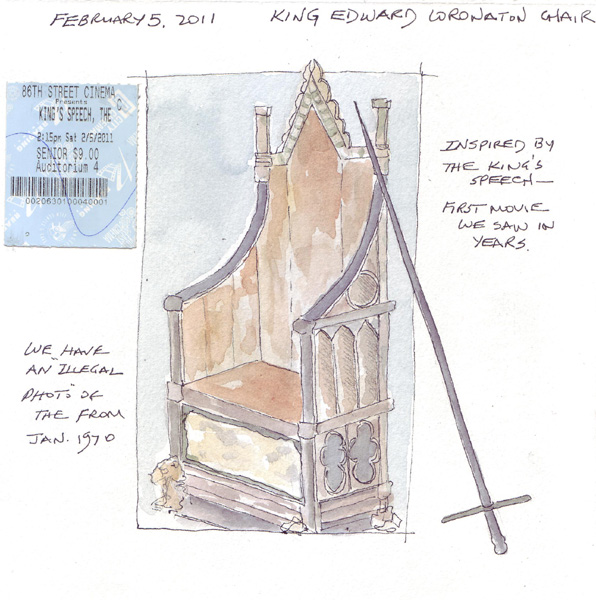 FEBRUARY 5, 2011
KING EDWARD CORONATON CHAIR
86TH STREET CINEMA
Presents
KING'S SPEECH, THE C
2:15pm Sat 2/5/2011
SENIOR $9.00
Auditorium 4
0020630100040001
INSPIRED BY
THE KING'S
SPEECH—
FIRST MOVIE
WE SAW IN
YEARS.
WE HAVE
AN "ILLEGAL
PHOTO" OF
THE FROM
JAN. 1970